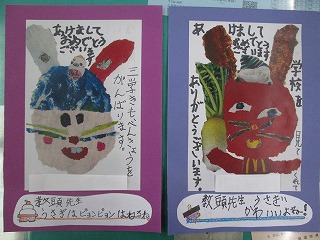 あけまして
おめでとう
ございます
三学きもべんきょうを
がんばります。
教頭先生
うさぎはピョンピョンはねるね
あけまして
おめでとう
ございます
学校を
見て
くれて
ありがとうございます。
教頭先生 うさぎ
かわいいよね!